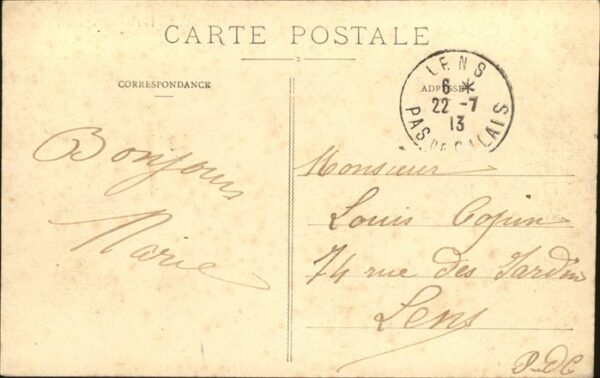 CARTE POSTALE
CORRESPONDANCE
ADRESSE
LENS
6 *
22 -7
13
PAS DE CALAIS
Bonjour
Marie
Monsieur
Louis
74 rue des Jardins
Lens
P-d-C